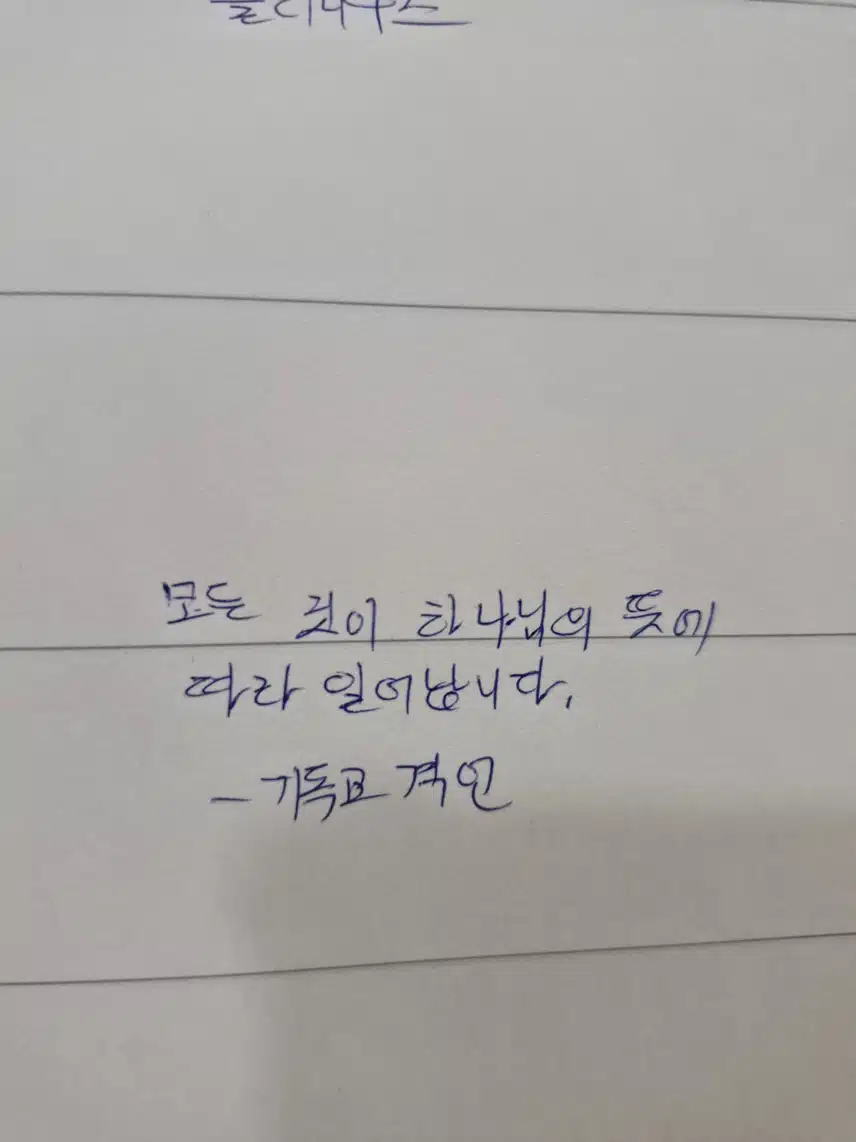 모든 것이 하나님의 뜻에
따라 일어납니다.
- 기독교 격언